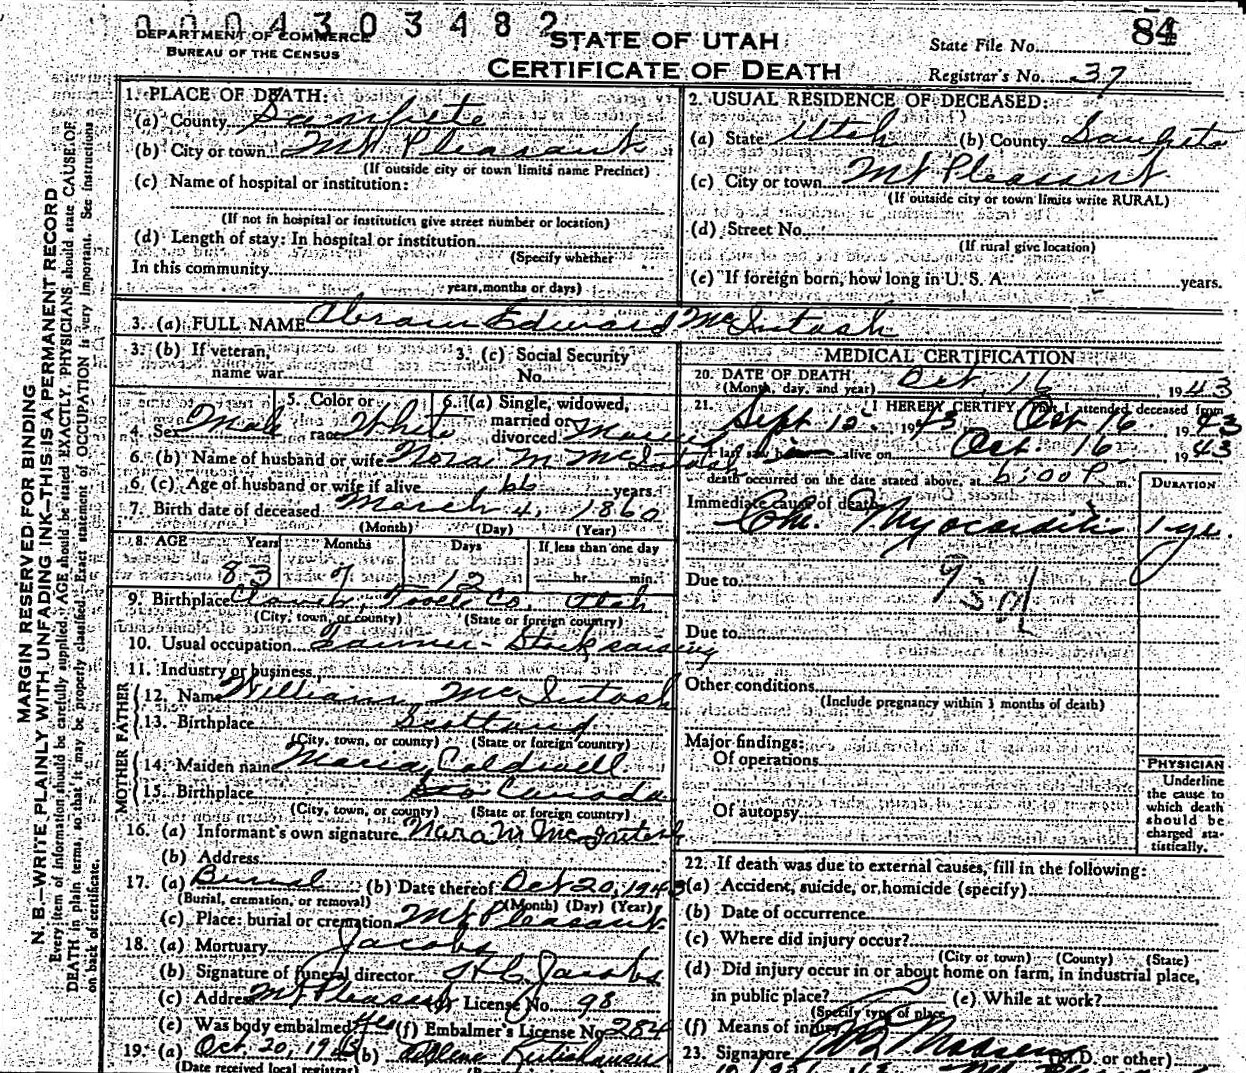 0004303482
DEPARTMENT OF COMMERCE
BUREAU OF THE CENSUS
STATE OF UTAH
CERTIFICATE OF DEATH
State File No. 84
Registrar's No. 37
MARGIN RESERVED FOR BINDING
N. B.—WRITE PLAINLY WITH UNFADING INK—THIS IS A PERMANENT RECORD
Every item of information should be carefully supplied. AGE should be stated EXACTLY. PHYSICIANS should state CAUSE OF
DEATH in plain terms, so that it may be properly classified. Exact statement of OCCUPATION is very important. See instructions
on back of certificate.
1. PLACE OF DEATH:
(a) County Sanpete
(b) City or town Mt Pleasant
(If outside city or town limits name Precinct)
(c) Name of hospital or institution:
(If not in hospital or institution give street number or location)
(d) Length of stay: In hospital or institution
(Specify whether
In this community
years, months or days)
2. USUAL RESIDENCE OF DECEASED:
(a) State Utah (b) County Sanpete
(c) City or town Mt Pleasant
(If outside city or town limits write RURAL)
(d) Street No.
(If rural give location)
(e) If foreign born, how long in U. S. A. years.
3. (a) FULL NAME Abram Edward McIntosh
3. (b) If veteran, name war
3. (c) Social Security No.
4. Sex Male
5. Color or race White
6. (a) Single, widowed, married or divorced Married
6. (b) Name of husband or wife Nora M McIntosh
6. (c) Age of husband or wife if alive 66 years.
7. Birth date of deceased March 4, 1860
(Month) (Day) (Year)
8. AGE Years Months Days If less than one day
83 7 12 hr. min.
9. Birthplace Clover, Tooele Co, Utah
(City, town, or county) (State or foreign country)
10. Usual occupation Farmer - Stock raising
11. Industry or business
FATHER
12. Name William McIntosh
13. Birthplace Scotland
(City, town, or county) (State or foreign country)
MOTHER
14. Maiden name Maria Caldwell
15. Birthplace Canada
(City, town, or county) (State or foreign country)
16. (a) Informant's own signature Nora M McIntosh
(b) Address
17. (a) Burial (b) Date thereof Oct 20, 1943
(Burial, cremation, or removal) (Month) (Day) (Year)
(c) Place: burial or cremation Mt Pleasant
18. (a) Mortuary Jacobs
(b) Signature of funeral director H C Jacobs
(c) Address Mt Pleasant License No. 98
(e) Was body embalmed Yes (f) Embalmer's License No 284
19. (a) Oct. 20, 1943 (b)
(Date received local registrar)
MEDICAL CERTIFICATION
20. DATE OF DEATH
(Month, day, and year) Oct. 16, 1943
21. I HEREBY CERTIFY, that I attended deceased from
Sept 12, 1943 Oct 16, 1943
I last saw him alive on Oct. 16 1943
death occurred on the date stated above, at 6:00 P.m.
DURATION
Immediate cause of death
Chr. Myocarditis 1 yr.
Due to
Due to
Other conditions
(Include pregnancy within 3 months of death)
Major findings:
Of operations
Of autopsy
PHYSICIAN
Underline
the cause to
which death
should be
charged sta-
tistically.
22. If death was due to external causes, fill in the following:
(a) Accident, suicide, or homicide (specify)
(b) Date of occurrence
(c) Where did injury occur?
(City or town) (County) (State)
(d) Did injury occur in or about home on farm, in industrial place,
in public place? (e) While at work?
(Specify type of place
(f) Means of injury
23. Signature (M.D. or other)